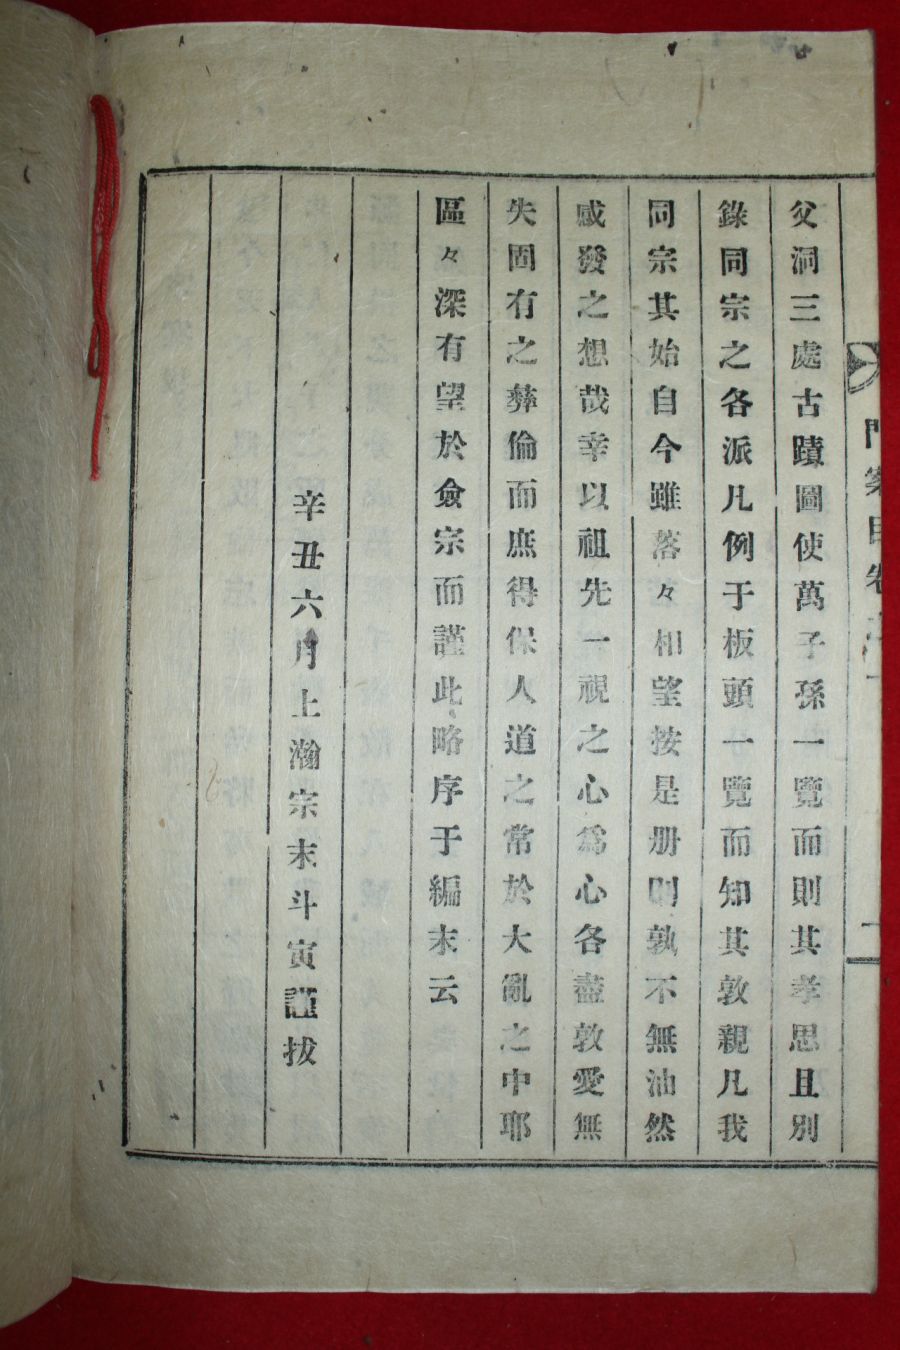 父洞三處古蹟圖使萬子孫一覽而則其孝思且別
錄同宗之各派凡例于板頭一覽而知其敦親凡我
同宗其始自今雖落々相望按是册則孰不無油然
感發之想哉幸以祖先一視之心爲心各盡敦愛無
失固有之彝倫而庶得保人道之常於大亂之中耶
區々深有望於僉宗而謹此略序于編末云
辛丑六月上瀚宗末斗寅謹拔